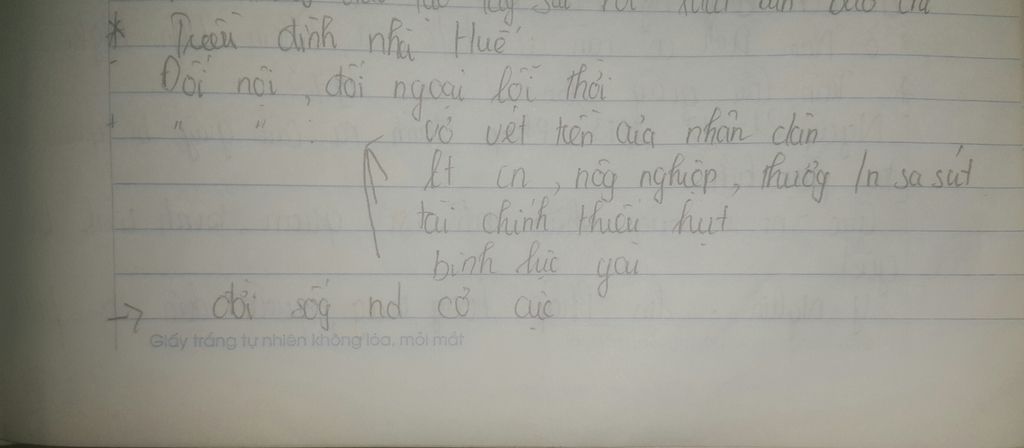 * Triều đình nhà Huế
- Đối nôi, đối ngoại lỗi thời
+ " " : vơ vét tiền của nhân dân
kt cn, nôg nghiệp, thươg /n sa sút
tài chính thiếu hụt
binh lực yếu
→ đời sốg nd cơ cực
Giấy trắng tự nhiên không lóa, mỏi mắt